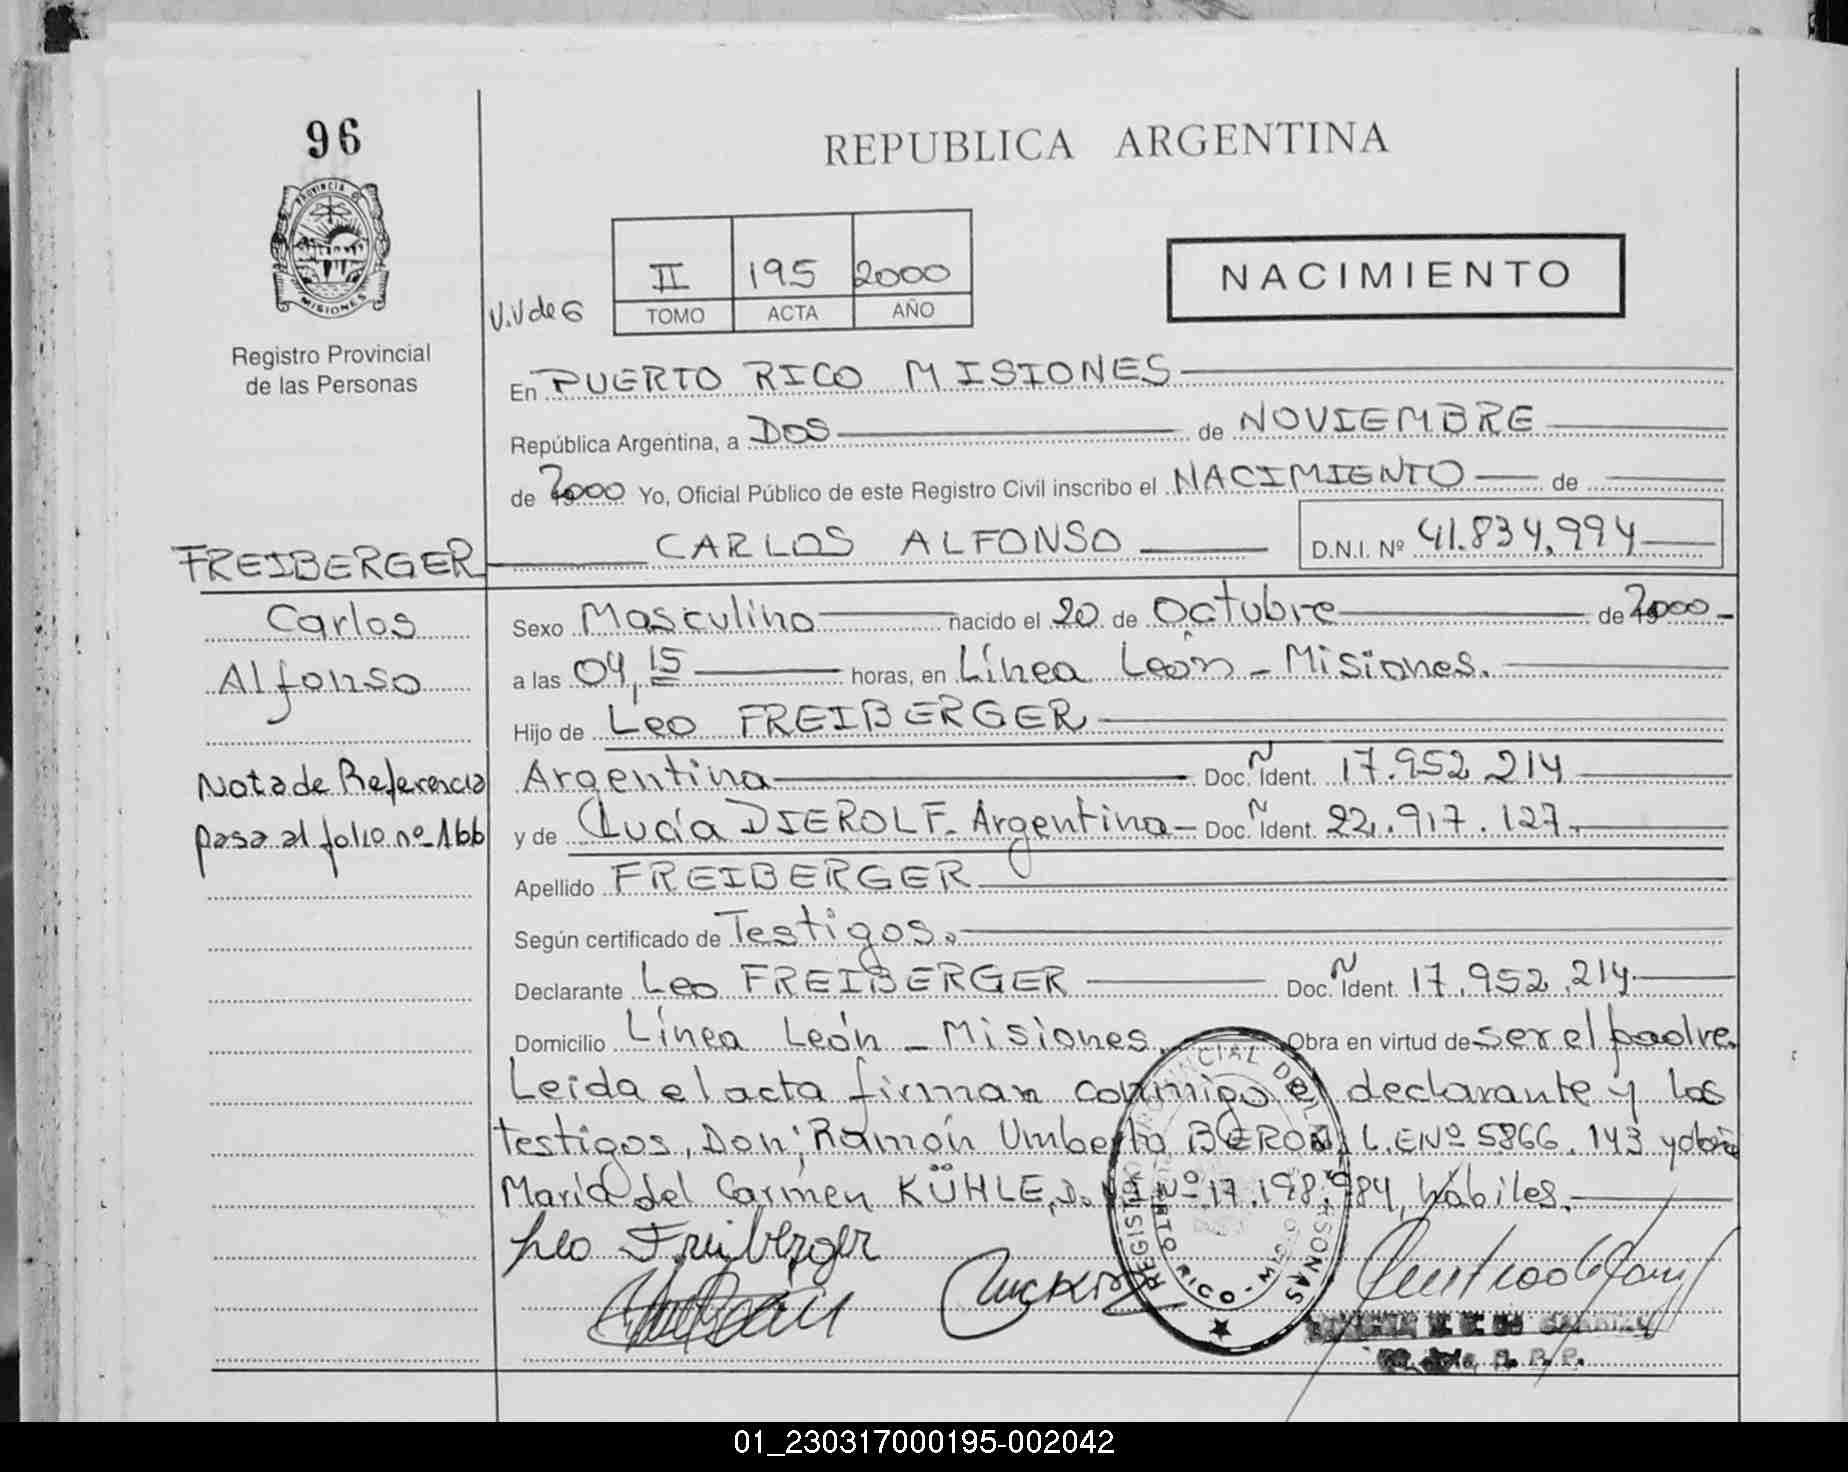 96
PROVINCIA D
MISIONES
Registro Provincial
de las Personas
REPUBLICA ARGENTINA
II 195 2000
TOMO ACTA AÑO
V.V de 6
NACIMIENTO
En PUERTO RICO MISIONES
República Argentina, a DOS de NOVIEMBRE
de 2000 Yo, Oficial Público de este Registro Civil inscribo el NACIMIENTO de
FREIBERGER CARLOS ALFONSO D.N.I. Nº 41.834.994
Carlos
Alfonso
Nota de Referencia
pasa al folio nº 166
Sexo Masculino nacido el 20 de Octubre de 2000
a las 04,15 horas, en Línea León - Misiones.
Hijo de Leo FREIBERGER
Argentina Doc. Ident. 17.952.214
y de Lucía DIEROLF. Argentina Doc. Ident. 22.917.127.
Apellido FREIBERGER
Según certificado de Testigos.
Declarante Leo FREIBERGER Doc. Ident. 17.952.214
Domicilio Línea León - Misiones. Obra en virtud de ser el padre.
Leída el acta firman conmigo el declarante y los
testigos, Don; Ramón Umberto L.E Nº 5866.143 y doña
María del Carmen KÜHLE, D.NI Nº 17.198.984, hábiles.
Leo Freiberger
REGISTRO PROVINCIAL DE LAS PERSONAS
PUERTO RICO - MISIONES
01_230317000195-002042